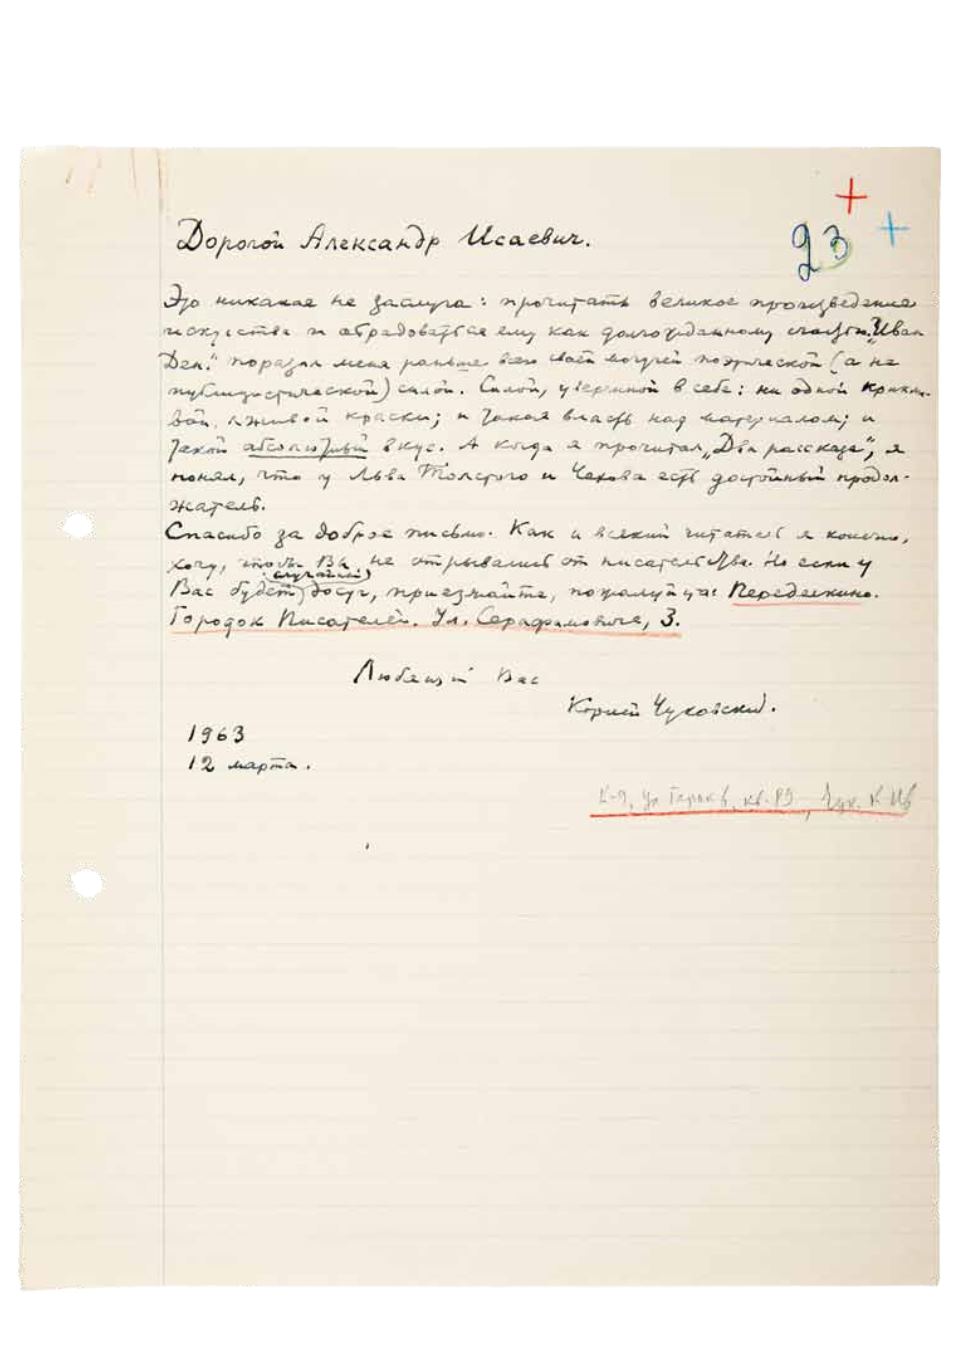 23
Дорогой Александр Исаевич.
Это никакая не заслуга: прочитать великое произведение
искусства и обрадоваться ему как долгожданному счастью. „Иван
Ден." поразил меня раньше всего своей могучей поэтической (а не
публицистической) силой. Силой, уверенной в себе: ни одной крикли-
вой, лживой краски; и такая власть над материалом; и
такой абсолютный вкус. А когда я прочитал „Два рассказа", я
понял, что у Льва Толстого и Чехова есть достойный продол-
жатель.
Спасибо за доброе письмо. Как и всякий читатель я конечно,
хочу, чтобы Вы не отрывались от писательства. Но если у
(случайный)
Вас будет досуг, приезжайте, пожалуйста: Переделкино.
Городок Писателей. Ул. Серафимовича, 3.
Любящий Вас
Корней Чуковский.
1963
12 марта.
К-9, ул Горьк, кв. 89, Чук. К Ив